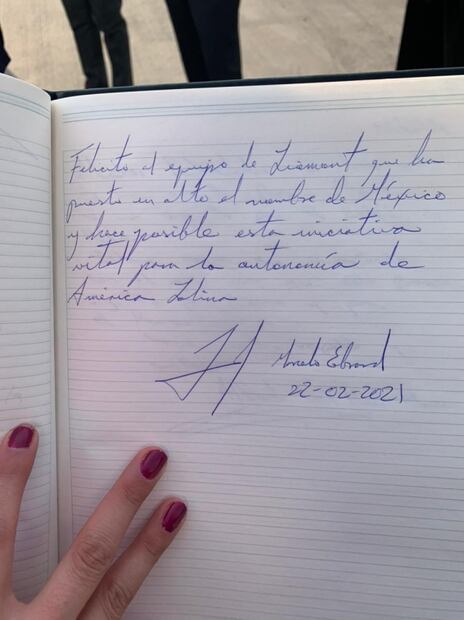 Felicito al equipo de Liomont que ha
puesto en alto el nombre de México
y hace posible esta iniciativa
vital para la autonomía de
América Latina
Marcelo Ebrard
22-02-2021